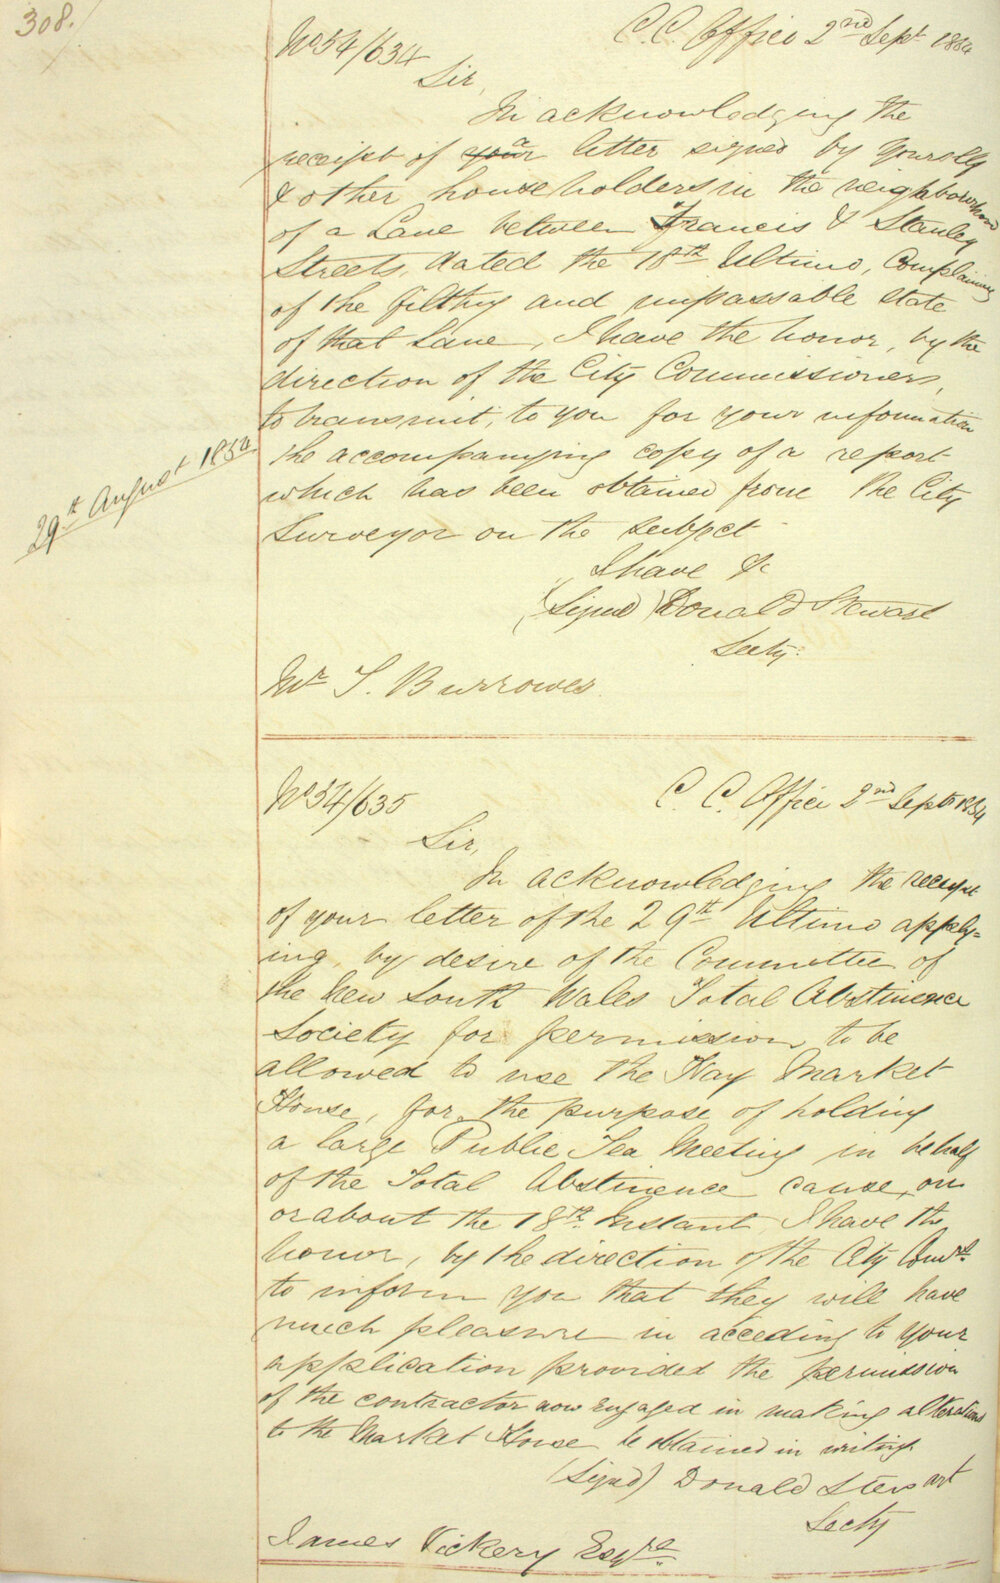 308.
No 54/634
C.C. Office 2nd Sept 1854
Sir,
In acknowledging the
receipt of your a letter signed by yourself
& other householders in the neighbourhood
of a Lane between Francis & Stanley
Streets, dated the 18th Ultimo, Complaining
of the filthy and impassable state
of that Lane, I have the honor, by the
direction of the City Commissioners,
to transmit, to you for your information
the accompanying copy of a report
which has been obtained from the City
Surveyor on the subject
29th August 1854
I have &c
(Signed) Donald Stewart
Secty.
Mr T. Burrowes
No 54/635
C. C. Office 2nd Septr 1854
Sir,
In acknowledging the receipt
of your letter of the 29th Ultimo apply=
ing, by desire of the Committee of
the New South Wales Total Abstinence
Society for permission, to be
allowed to use the Hay Market
House, for the purpose of holding
a large Public Tea Meeting in behalf
of the Total Abstinence cause, on
or about the 18th Instant, I have the
honor, by the direction of the City Comrs.
to inform you that they will have
much pleasure in acceding to your
application provided the permission
of the contractor now engaged in making alterations
to the Market House be obtained in writing
(Signed) Donald Stewart
Secty
James Vickery Esqre.